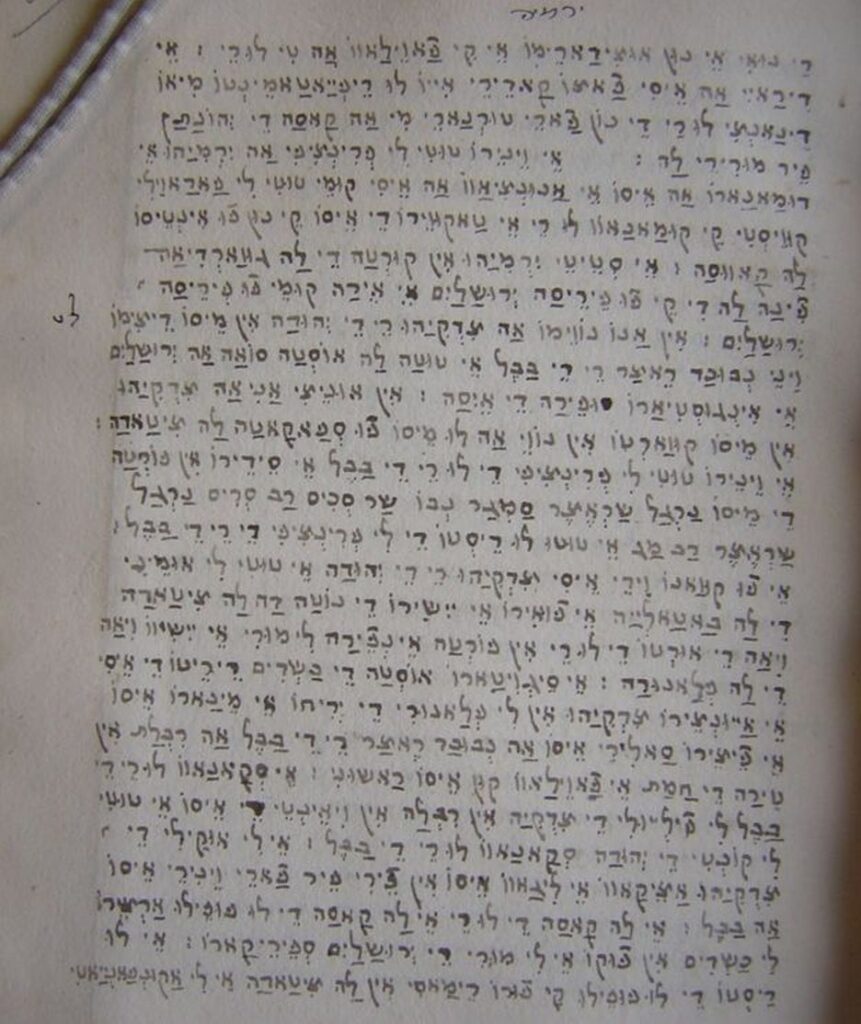 ירמיה
די נואי אי נון אוצידארימו אי קי פאוילאוו אה טי לו רי : אי
דיראיי אה איסי פאצו קאדירי איייו לו ריפייאטאמינטו מיאו
דינאנצי לו רי די נון פארי טורנארי מי אה קאסה די יהונתן
פיר מורירי לה : אי וינירו טוטי לי פרינציפי אה ירמיהו אי
דומאנארו אה איסו אי אנונציאוו אה איסי קומי טוטי לי פאראוילי
קוויסטי קי קומאנאוו לו רי אי טאקוירו די איסו קי נון פו אינטיסו
לה קאווסה : אי סטיטי ירמיהו אין קורטה די לה גווארדיאה
פינה לה די קי פו פיריסה ירושלים אי אירה קומי פו פיריסה
לט
ירושלים : אין אנו נווימו אה צדקיהו רי די יהודה אין מיסו דיצימו
ויני נבוכד ראיצר רי די בבל אי טוטה לה אוסטה סואה אה ירושלים
אי אינגוסטיארו סופירה די איסה : אין אונדיצי אני אה צדקיהו
אין מיסו קווארטו אין נווי אה לו מיסו פו ספאקאטה לה ציטאדה :
אי וינירו טוטי לי פרינציפי די לו רי די בבל אי סידירו אין פורטה
די מיסו נרגל שראצר סמגר נבו שר סכים רב סריס נרגל
שראצר רב מג אי טוטו לו ריסטו די לי פרינציפי די רי די בבל :
אי פו קואנו וידי איסי צדקיהו רי די יהודה אי טוטי לי אומיני
די לה באטאלייה אי פואירו אי יישירו די נוטה דה לה ציטאדה
ויאה די אורטו די לו רי אין פורטה אינפירה לי מורי אי יישיוו ויאה
די לה פלאנורה : אי סיגויטארו אוסטה די כשדים דיריטו די איסי
אי איונצירו צדקיהו אין לי פלאנורי די יריחו אי מינארו איסו
אי פיצירו סאלירי איסו אה נבוכד ראצר רי די בבל אה רבלת אין
טירה די חמת אי פאוילאוו קון איסו ראשוני : אי סקאנאוו לו רי די
בבל לי פילייולי די צדקיה אין רבלה אין ויאינטי די איסו אי טוטי
לי קונטי די יהודה סקאנאוו לו רי די בבל : אי לי אוקילי די
צדקיהו איציקאוו אי ליגאוו איסו אין פירי פיר פארי וינירי איסו
אה בבל : אי לה קאסה די לו רי אי לה קאסה די לו פופילו ארסירו
לי כשדים אין פוקו אי לי מורי די ירושלים ספיריקארו : אי לו
ריסטו די לו פופילו קי פורו רימאסי אין לה ציטאדה אי לי